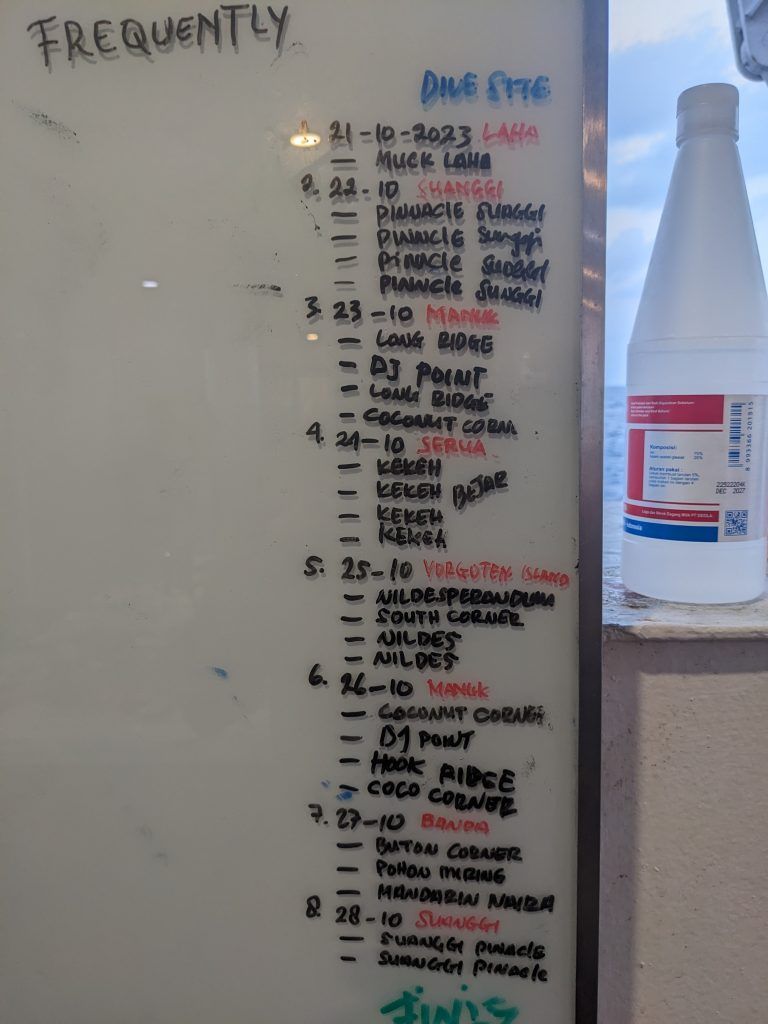 FREQUENTLY
DIVE SITE
1. 21-10-2023 LAHA
— MUCK LAHA
2. 22-10 SUANGGI
— PINNACLE SUAGGI
— PINNACLE Sunggi
— PiNACLE SUAGGI
— PINNACLE SUNGGI
3. 23-10 MANUK
— LONG RIDGE
— DJ POINT
— LONG RIDGE
— COCONUT CORN
4. 24-10 SERUA
— KEKEH
— KEKEH BEJAR
— KEKEH
— KEKEH
5. 25-10 VORGOTEN ISLAND
— NILDESPERANDUMA
— SOUTH CORNER
— NILDES
— NILDES
6. 26-10 MANUK
— COCONUT CORNER
— DJ POINT
— HOOK RIDGE
— COCO CORNER
7. 27-10 BANDA
— BUTON CORNER
— POHON MIRING
— MANDARIN NAIRA
8. 28-10 SUANGGI
— SUANGGI PINACLE
— SUANGGI PINACLE
FINIS
Komposisi:
Aturan pakai :
8 993366 201915
22922204K
DEC 2027
Indonesia